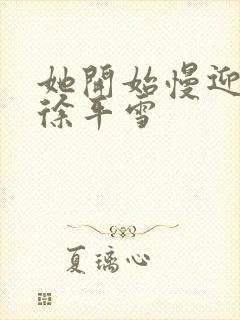 她開始慢迎
徐平雪
夏璃心